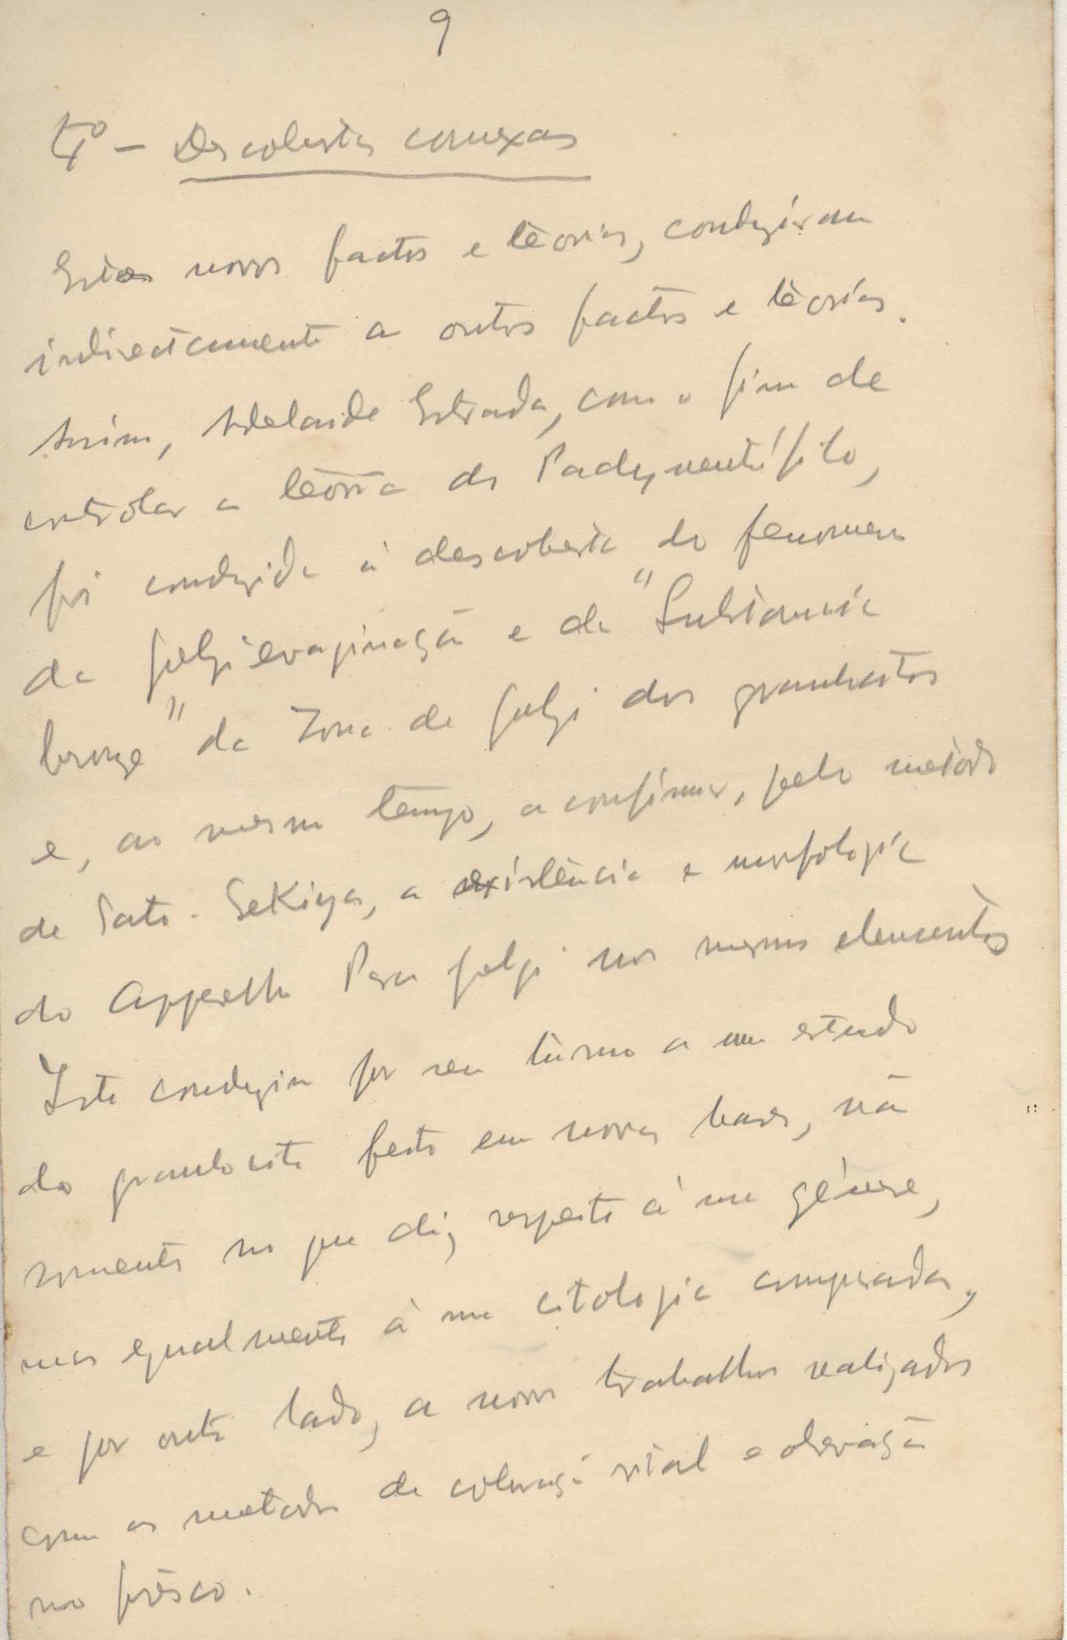 9
4º - Descobertas conexas
Estes novos factos e teorias, conduziram
indirectamente a outros factos e teorias.
Assim, Adelaide Estrada, com o fim de
controlar a teoria do
foi conduzida à descoberta do fenomeno
da golgievaginação e da "Substancia
bronze" da Zona de golgi dos granulocitos
e, ao mesmo tempo, a confirmar, pelo metodo
de Sato-Sekiya, a existência e morfologia
do Apparelho Para golgi nos mesmos elementos
Isto conduziu por seu turno a um estudo
do granulocito feito em novas bases, não
somente no que diz respeito à sua génese,
mas egualmente à sua citologia comparada,
e por outro lado, a novos trabalhos realizados
com os metodos de coloração vital e observação
no frêsco.